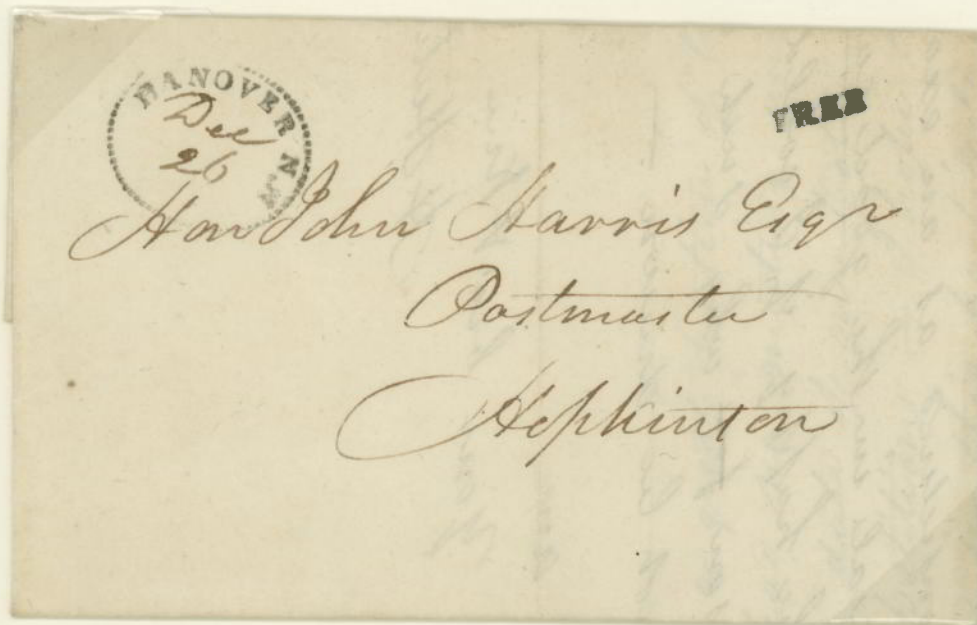 HANOVER N.H.
Dec
26
FREE
Hon John Harris Esqr
Postmaster
Hopkinton